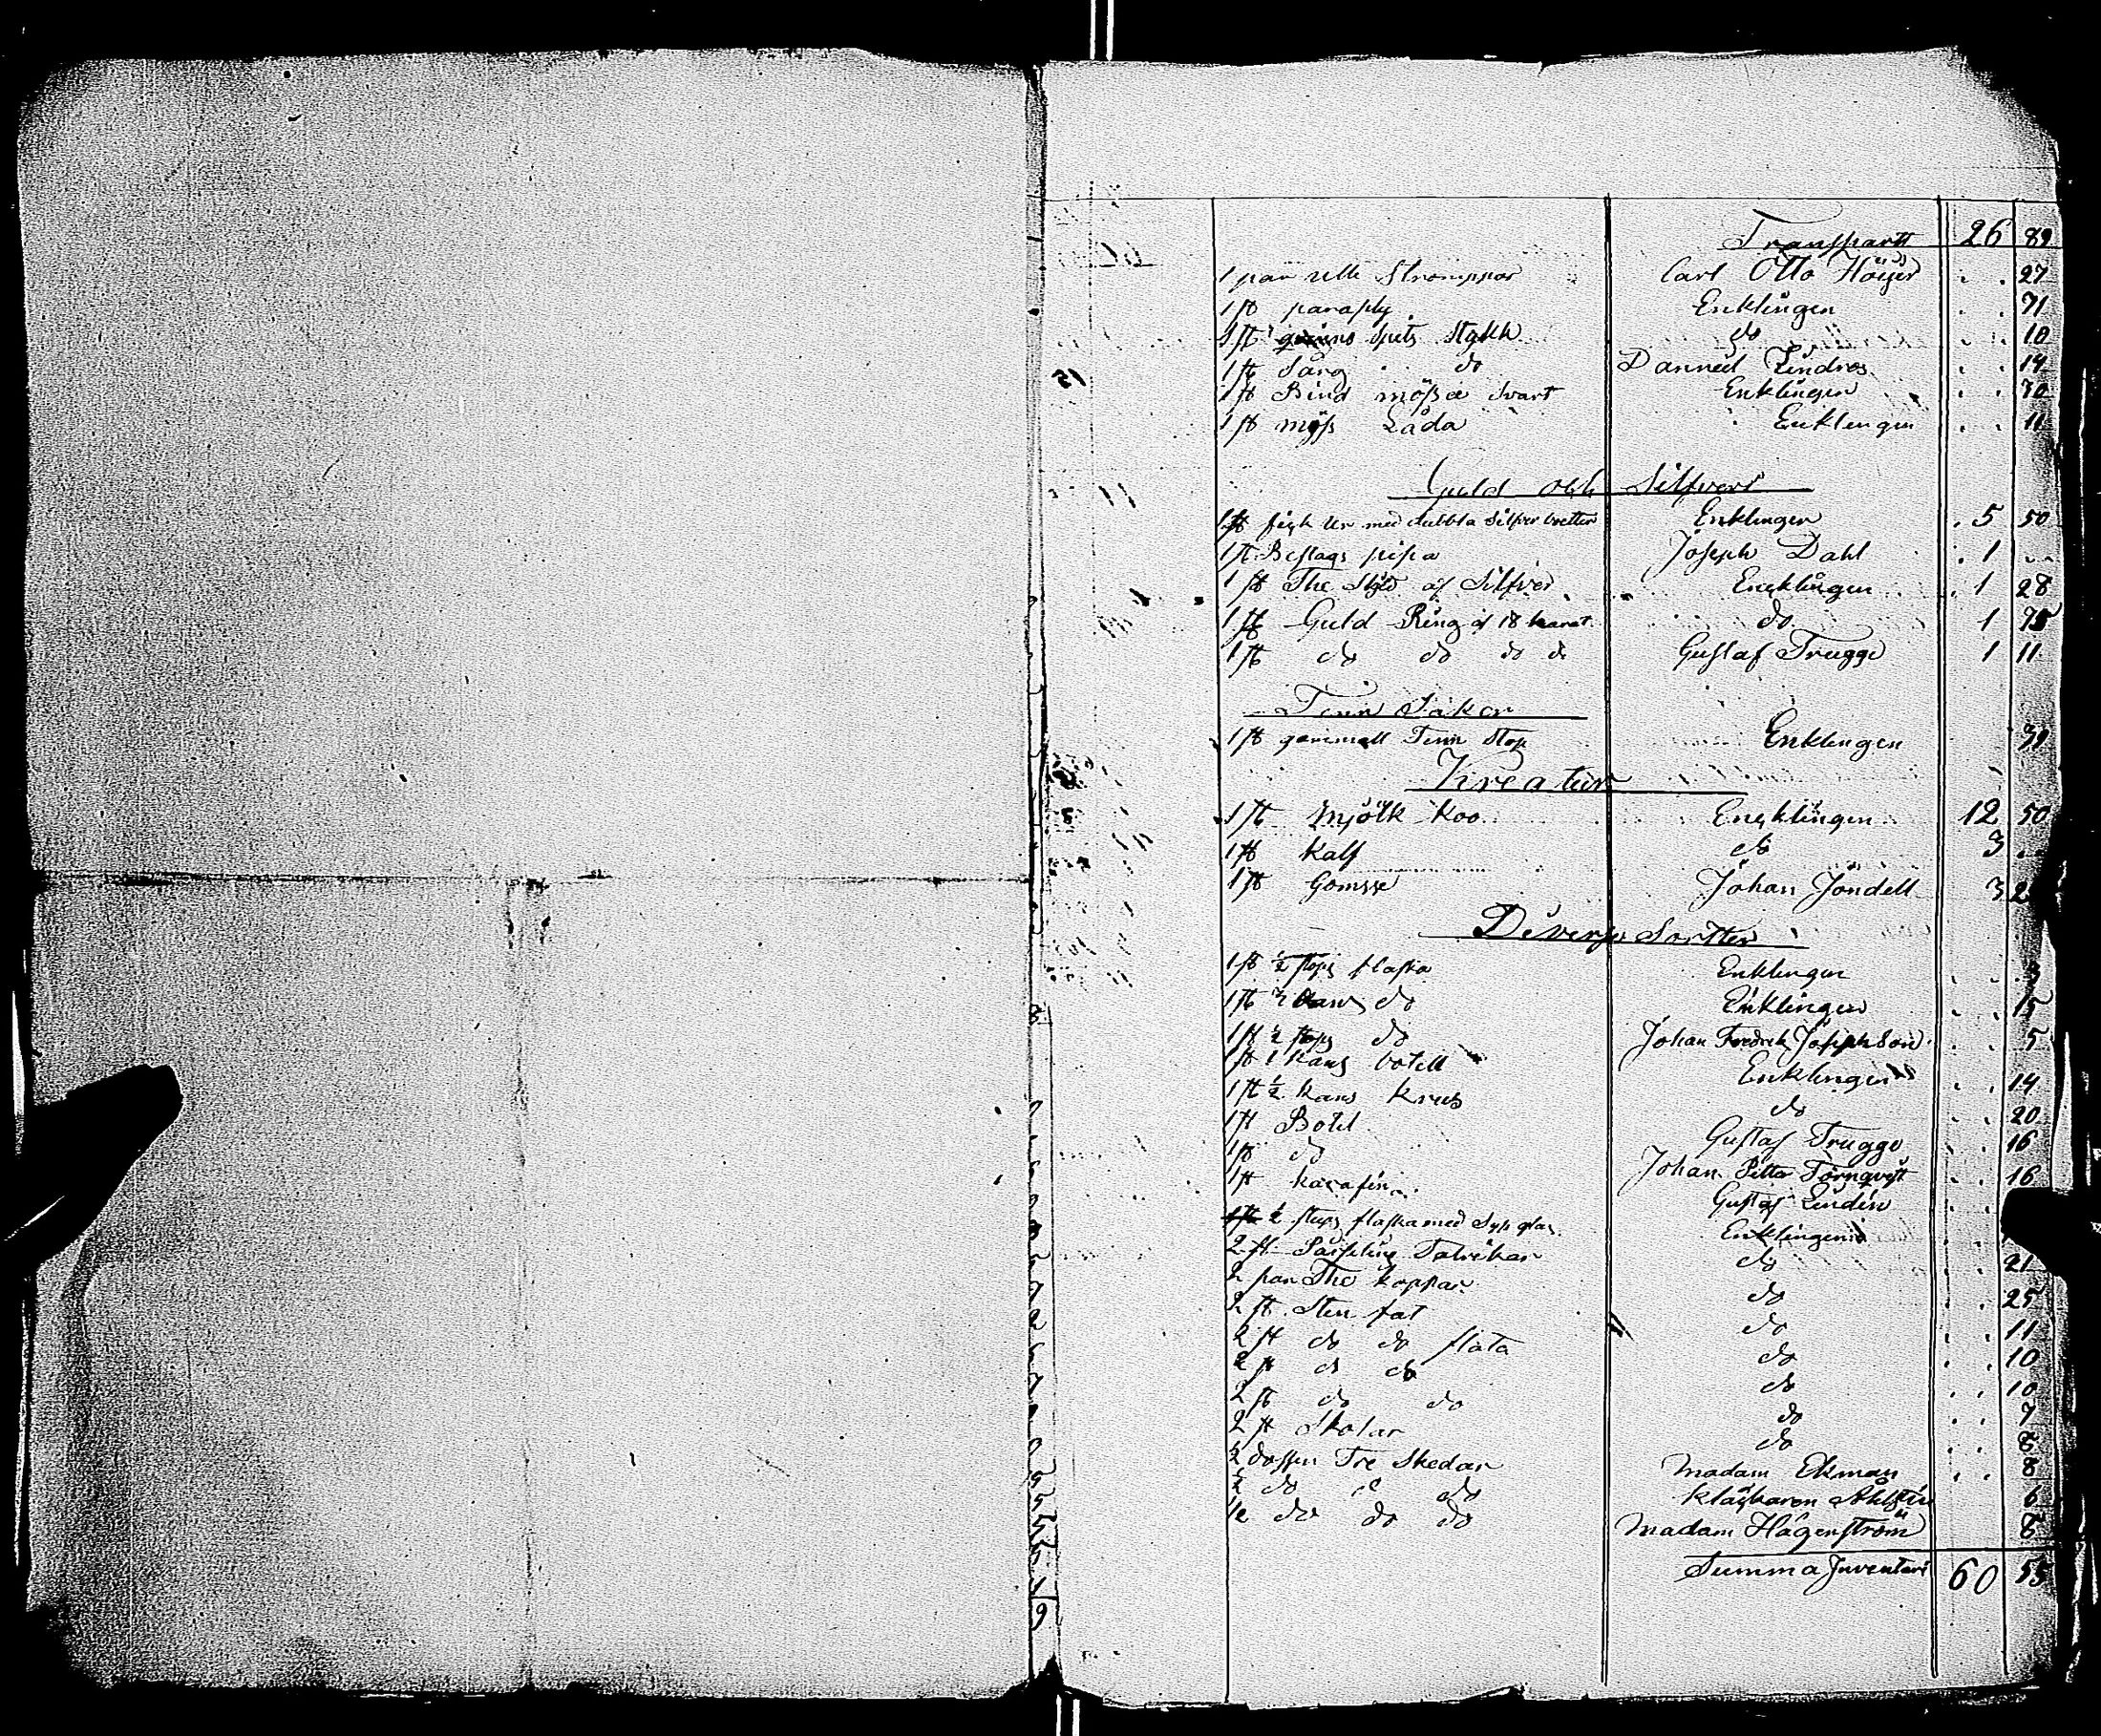 Transpartt 26 89
1 par ulle Strumppor Carl Otto Höijer . . 27
1 st paraply Enklingen . . 71
1 st Spets Stykk do . . 10
1 st Sång do Danniel Lindros . . 14
1 st Bind mössa Svart Enklingen . . 70
1 st myss Låda Enklengen . . 11
Guld okh Silfver
1 st fikk Ur med dubbla Silfver bretter Enklingen . 5 50
1 st Beslags pipa Joseph Dahl . 1 . .
1 st The Sked af Silfver Encklingen . 1 28
1 st Guld Ring af 18 karat do 1 75
1 st do do do do Gustaf Trugge 1 11
Tenn Saker
1 st gammall Tenn Stop Enklingen 31
Kreatur
1 st Mjölk Koo Encklingen 12 50
1 st Kalf do 3 .
1 st Gomsse Johan Jöndell 3 2
Diverse Sortter
1 st ½ stops flaska Enklingen . . 3
1 st ½ kans do Enklingen . . 15
1 st ½ stops do Johan Fredrek Josephson . . 5
1 st 1 Kans botell Enklingen . . 14
1 st ½ Kans Krus do . . 20
1 st Botel Gustaf Trugge . . 16
1 st do Johan Petter Törnqvist . . 16
1 st Karafin Gustaf Lindin . .
1 st ½ stops flaska med Sup glas Enklingen . .
2 st Posling Talrikar do . . 21
2 par The koppar do . . 25
2 st Sten fat do . . 11
2 st do do flata do . . 10
2 st do do do . . 10
2 st do do do . . 7
2 st Skolar do . . 8
½ dossin Tre Skedar Madam Ekman . . 8
½ do do do Kläkkaren 6
½ do do do Madam Hägerström 8
Summa Inventari 60 55